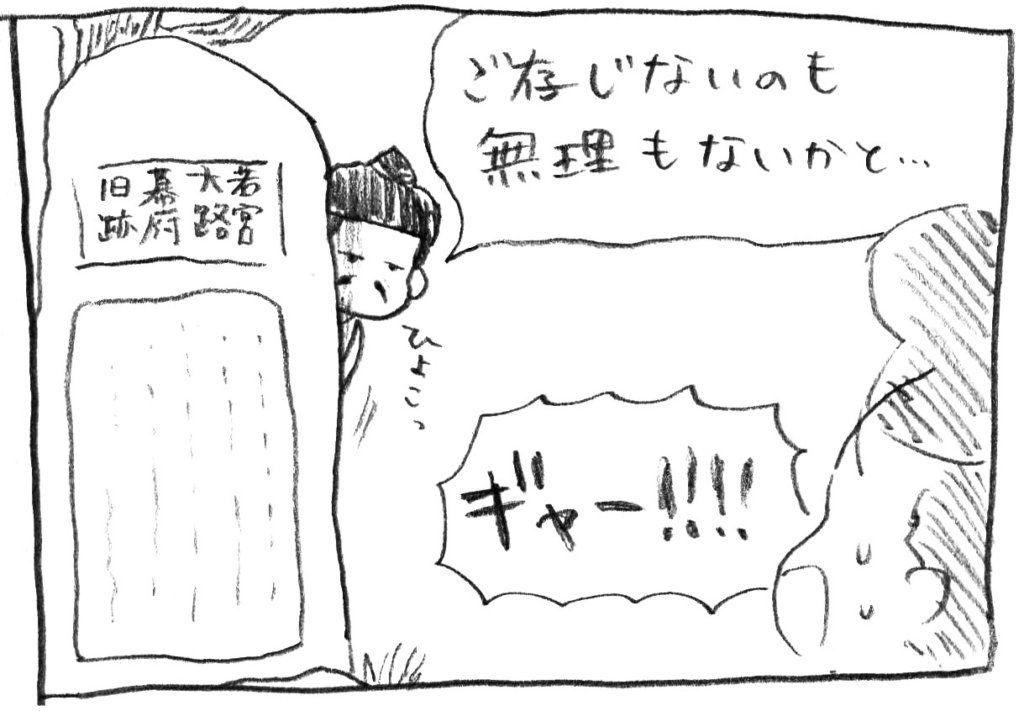 ご存じないのも
無理もないかと…
若宮
大路
幕府
旧跡
ひょこっ
ギャー!!!!